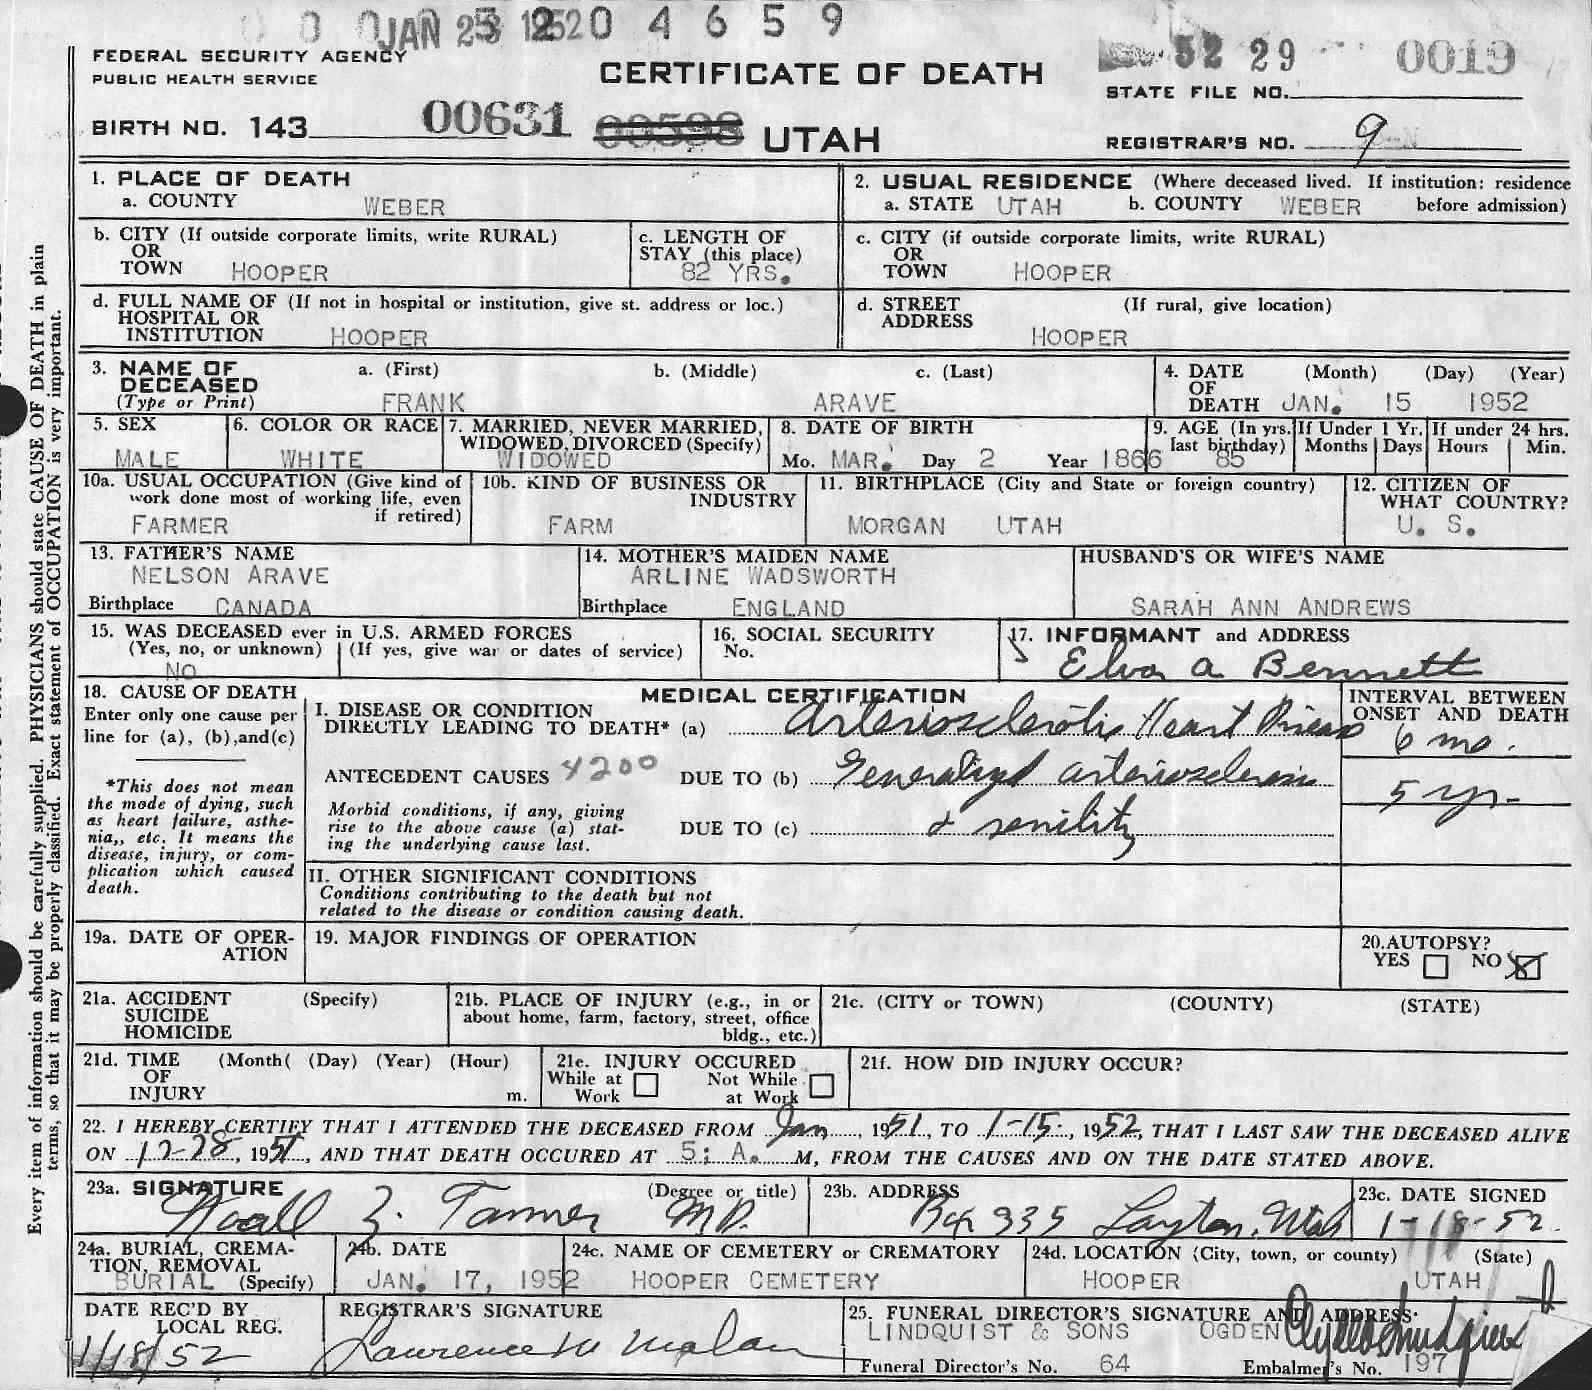 JAN 23 1952 0 4 6 5 9
FEDERAL SECURITY AGENCY
PUBLIC HEALTH SERVICE
CERTIFICATE OF DEATH
52 29 0019
STATE FILE NO.
BIRTH NO. 143 00631 00598 UTAH
REGISTRAR'S NO. 9
1. PLACE OF DEATH
a. COUNTY WEBER
2. USUAL RESIDENCE (Where deceased lived. If institution: residence before admission)
a. STATE UTAH b. COUNTY WEBER
b. CITY (If outside corporate limits, write RURAL)
OR
TOWN HOOPER
c. LENGTH OF
STAY (this place)
82 YRS.
c. CITY (if outside corporate limits, write RURAL)
OR
TOWN HOOPER
d. FULL NAME OF (If not in hospital or institution, give st. address or loc.)
HOSPITAL OR
INSTITUTION HOOPER
d. STREET (If rural, give location)
ADDRESS HOOPER
3. NAME OF a. (First) b. (Middle) c. (Last)
DECEASED
(Type or Print) FRANK ARAVE
4. DATE (Month) (Day) (Year)
OF
DEATH JAN. 15 1952
5. SEX
MALE
6. COLOR OR RACE
WHITE
7. MARRIED, NEVER MARRIED,
WIDOWED, DIVORCED (Specify)
WIDOWED
8. DATE OF BIRTH
Mo. MAR. Day 2 Year 1866
9. AGE (In yrs. last birthday) 85
If Under 1 Yr.
Months Days
If under 24 hrs.
Hours Min.
10a. USUAL OCCUPATION (Give kind of
work done most of working life, even
if retired)
FARMER
10b. KIND OF BUSINESS OR
INDUSTRY
FARM
11. BIRTHPLACE (City and State or foreign country)
MORGAN UTAH
12. CITIZEN OF
WHAT COUNTRY?
U. S.
13. FATHER'S NAME
NELSON ARAVE
Birthplace CANADA
14. MOTHER'S MAIDEN NAME
ARLINE WADSWORTH
Birthplace ENGLAND
HUSBAND'S OR WIFE'S NAME
SARAH ANN ANDREWS
15. WAS DECEASED ever in U.S. ARMED FORCES
(Yes, no, or unknown) (If yes, give war or dates of service)
NO
16. SOCIAL SECURITY
No.
17. INFORMANT and ADDRESS
Elva A Bennett
18. CAUSE OF DEATH
Enter only one cause per
line for (a), (b), and(c)
*This does not mean
the mode of dying, such
as heart failure, asthe-
nia,, etc. It means the
disease, injury, or com-
plication which caused
death.
MEDICAL CERTIFICATION
I. DISEASE OR CONDITION
DIRECTLY LEADING TO DEATH* (a) Arteriosclerotic Heart Disease
ANTECEDENT CAUSES 4200 DUE TO (b) Generalized arteriosclerosis
Morbid conditions, if any, giving
rise to the above cause (a) stat-
ing the underlying cause last.
DUE TO (c) & senility
INTERVAL BETWEEN
ONSET AND DEATH
6 mo.
5 yr
II. OTHER SIGNIFICANT CONDITIONS
Conditions contributing to the death but not
related to the disease or condition causing death.
19a. DATE OF OPER-
ATION
19. MAJOR FINDINGS OF OPERATION
20. AUTOPSY?
YES NO X
21a. ACCIDENT (Specify)
SUICIDE
HOMICIDE
21b. PLACE OF INJURY (e.g., in or
about home, farm, factory, street, office
bldg., etc.)
21c. (CITY or TOWN) (COUNTY) (STATE)
21d. TIME (Month( (Day) (Year) (Hour)
OF
INJURY m.
21e. INJURY OCCURED
While at Work Not While at Work
21f. HOW DID INJURY OCCUR?
22. I HEREBY CERTIFY THAT I ATTENDED THE DECEASED FROM Jan, 1951, TO 1-15, 1952, THAT I LAST SAW THE DECEASED ALIVE
ON 12-28, 1951, AND THAT DEATH OCCURED AT 5: A. M, FROM THE CAUSES AND ON THE DATE STATED ABOVE.
23a. SIGNATURE (Degree or title)
Noall Z. Tanner M.D.
23b. ADDRESS
Box 335 Layton, Utah
23c. DATE SIGNED
1-18-52
24a. BURIAL, CREMA-
TION, REMOVAL
BURIAL (Specify)
24b. DATE
JAN. 17, 1952
24c. NAME OF CEMETERY OR CREMATORY
HOOPER CEMETERY
24d. LOCATION (City, town, or county) (State)
HOOPER UTAH
DATE REC'D BY
LOCAL REG.
1/18/52
REGISTRAR'S SIGNATURE
Lawrence M Malan
25. FUNERAL DIRECTOR'S SIGNATURE AND ADDRESS
LINDQUIST & SONS OGDEN
Funeral Director's No. 64 Embalmer's No. 197
Every item of information should be carefully supplied. PHYSICIANS should state CAUSE OF DEATH in plain
terms, so that it may be properly classified. Exact statement of OCCUPATION is very important.